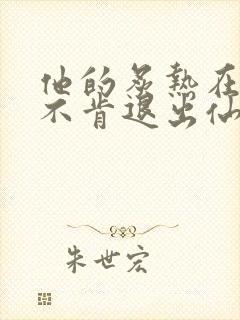 他的炙热在
不肯退出仙
朱世宏